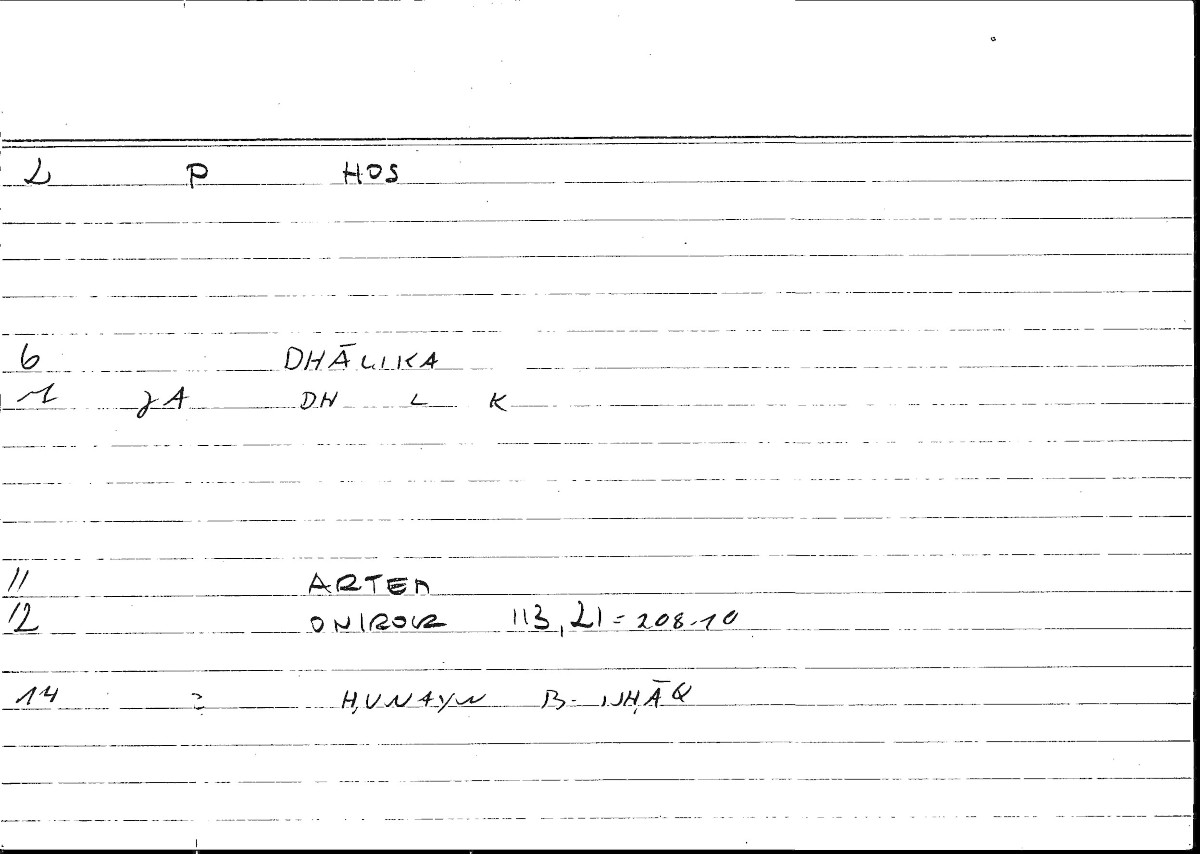 2 P HOS
6 DHĀLIKA
1 JA DH L K
11 ARTEM
12 ONIROCR 113,21=208.10
14 = ḤUNAYN B. ISḤĀQ